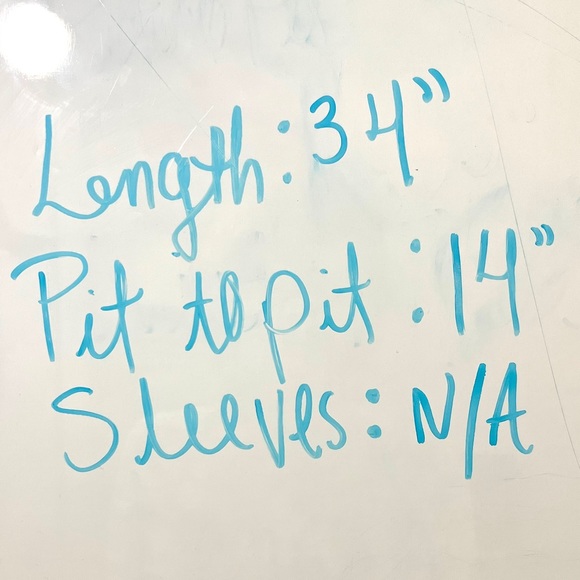 Length: 34"
Pit to pit: 14"
Sleeves: N/A